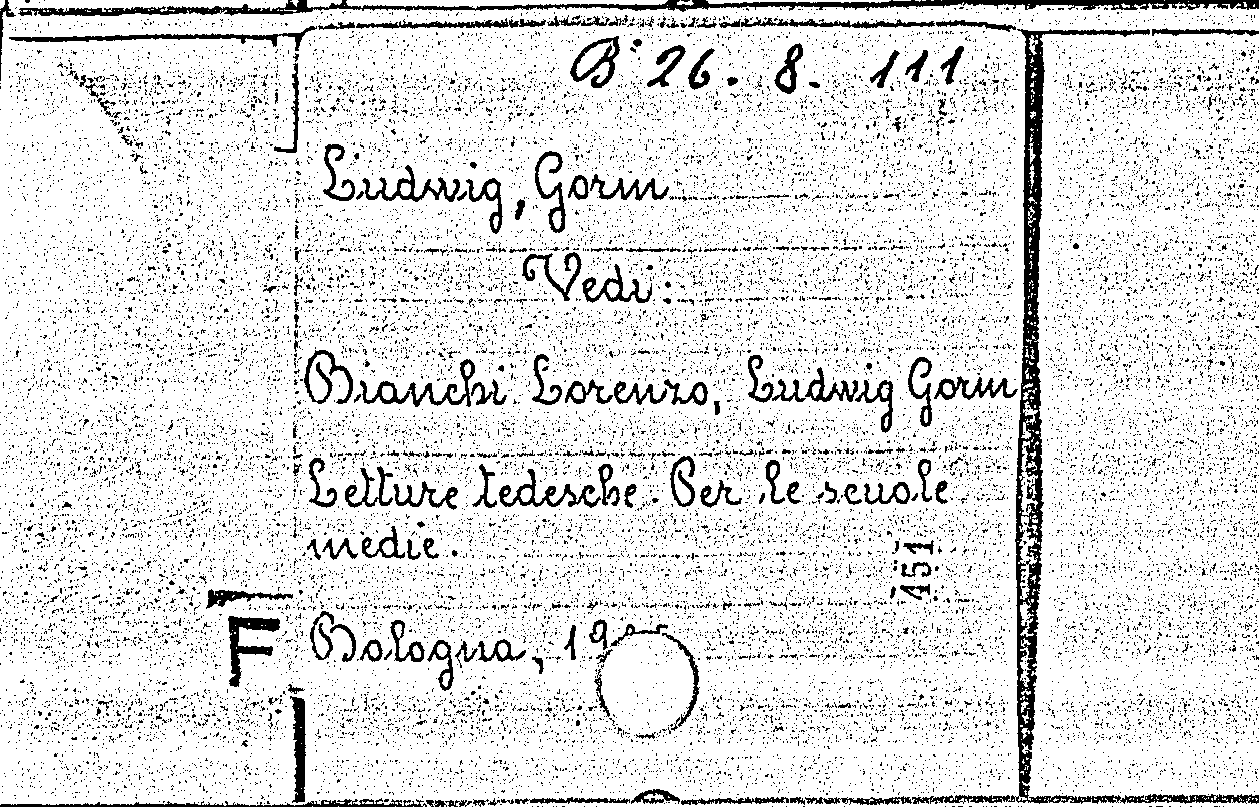 B. 26. 8. 111
Ludwig, Gorm
Vedi:
Bianchi Lorenzo, Ludwig Gorm
Letture tedesche. Per le scuole
medie.
451
F
Bologna,